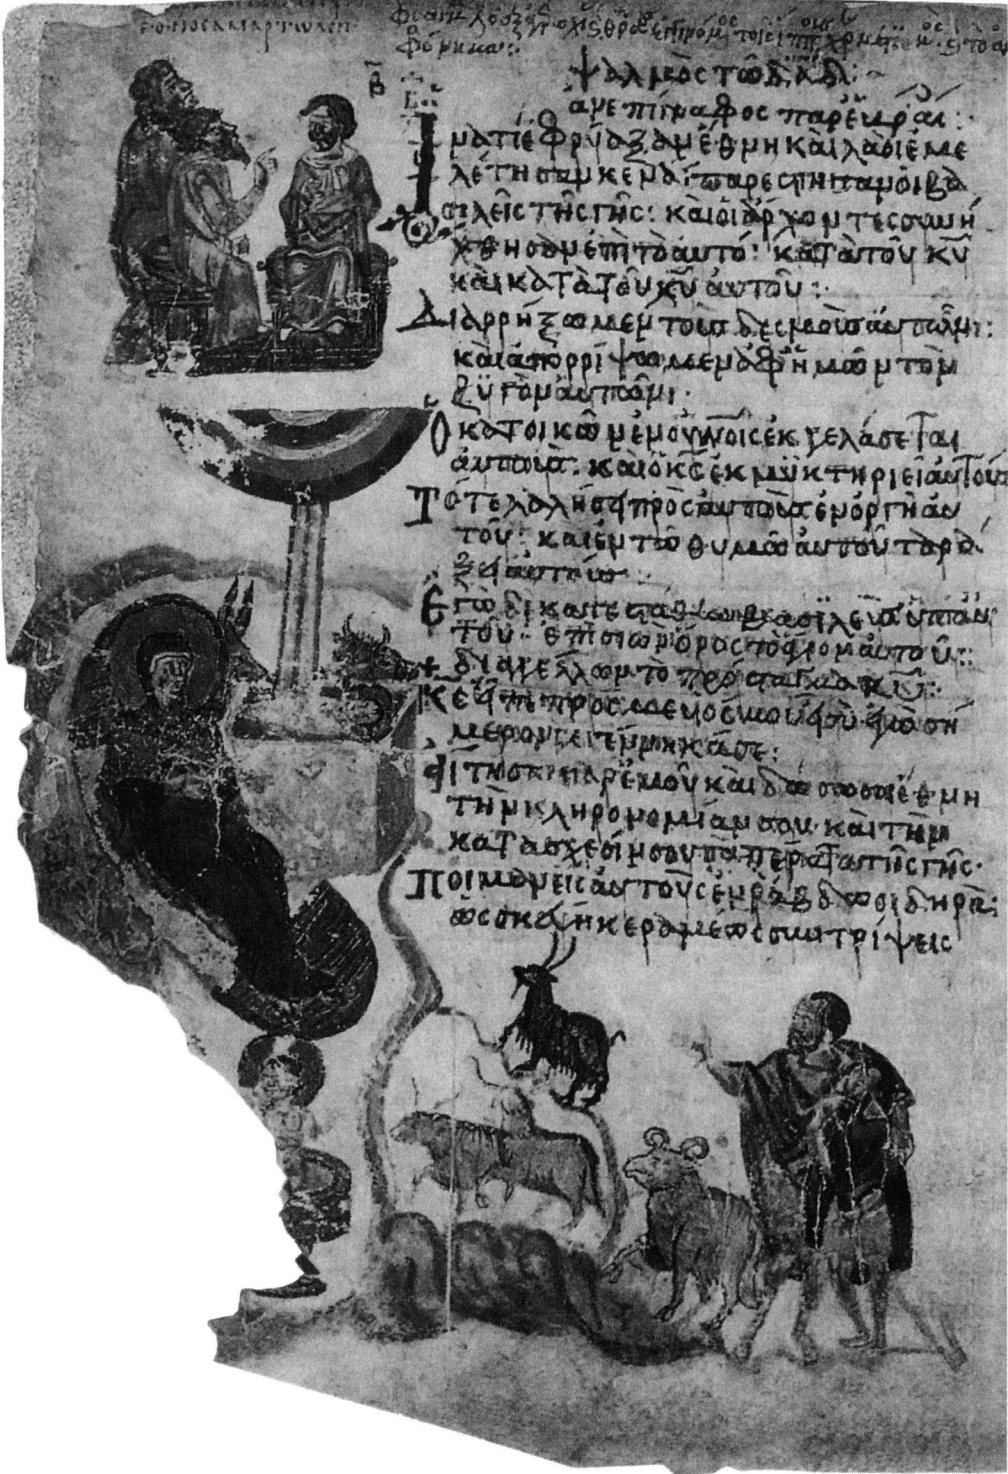 β̄
ψαλμὸς τῶ δᾱδ:
ἀνεπίγραφος παρ' ἑβραί:
Ἱνατί ἐφρύαξαν ἔθνη καὶ λαοὶ ἐμε
λέτησαν κενά· παρέστησαν οἱ βα
σιλεῖς τῆς γῆς: καὶ οἱ ἄρχοντες συνή
χθησαν ἐπὶ τὸ αυτό: κατὰ τοῦ κ̄ῡ
καὶ κατὰ τοῦ χ̄ῡ αὐτοῦ:
Διαρρήξωμεν τοὺς δεσμοὺς αὐτῶν:
καὶ ἀπορρίψωμεν ἀφ' ἡμῶν τὸν
ζυγὸν αὐτῶν·
Ὁ κατοικῶν ἐν οὐνοῖς ἐκγελάσεται
αὐτούς· καὶ ὁ κ̄ς̄ ἐκμυκτηριεῖ αὐτούς
Τότε λαλήσει πρὸς αὐτοὺς ἐν ὀργῆ αὐ
τοῦ: καὶ ἐν τῶ θυμῶ αὐτοῦ ταρά
ξει αὐτούς:
Ἐγὼ δὲ κατεστάθην βασιλεὺς ὑπ' αὐ
τοῦ· ἐπὶ σιὼν ὄρος τὸ ἅγιον αὐτοῦ::
διαγγέλλων τὸ πρόσταγμα κ̄ῡ:
Κ̄ς̄ εἶπε πρός με υἱός μου εἶ σὺ· ἐγὼ σή
μερον γεγέννηκά σε:
αἴτησαι παρ' ἐμοῦ καὶ δώσω σοι ἔθνη
τὴν κληρονομίαν σου· καὶ τὴν
κατάσχεσίν σου τὰ πέρατα τῆς γῆς·
Ποιμανεῖς αὐτοὺς ἐν ῥάβδω σιδηρᾶ:
ὡς σκεύη κεραμέως συντρίψεις